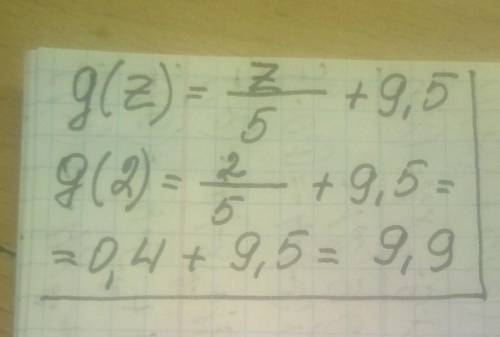 g(z) = z/5 + 9,5
g(2) = 2/5 + 9,5 =
= 0,4 + 9,5 = 9,9